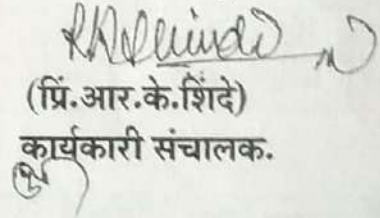 (प्रिं.आर.के.शिंदे)
कार्यकारी संचालक.